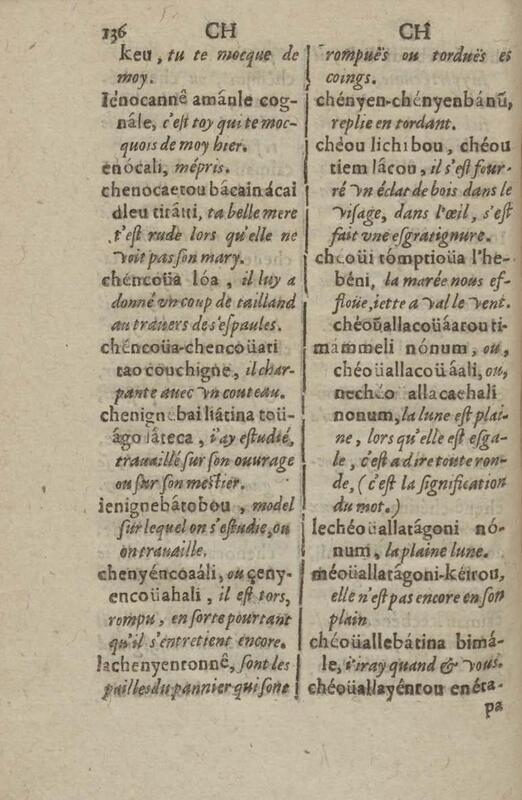 136 CH CH
keu, tu te mocque de
moy.
Iénocannê amánle cog-
nále, c'est toy qui te moc-
quois de moy hier.
enócali, mépris.
chenocaetou bácainácai
dleu tirátti, ta belle mere
t'est rude lors qu'elle ne
voit pas son mary.
chéncoüa lóa, il luy a
donné vn coup de tailland
au trauers de s'espaules.
chéncoüa-chencoüati
tao couchigne, il char-
pante auec vn couteau.
chenignebailiátina toü-
ágo láteca, i'ay estudié,
trauaillé sur son ouurage
ou sur son mestier.
ienignebátobou, model
sur lequel on s'estudie, ou
on trauaille.
chenyéncoaáli, ou çeny-
encoüahali, il est tors,
rompu, en sorte pourtant
qu'il s'entretient encore.
lachenyentonnê, sont les
pailles du pannier qui sont
rompuës ou torduës es
coings.
chényen-chényenbánũ,
replie en tordant.
chéou lichibou, chéou
tiem lácou, il s'est four-
ré vn éclat de bois dans le
visage, dans l'œil, s'est
fait vne esgratignure.
cheoüi tómptioüa l'he-
béni, la marée nous ef-
floüe, iette a val le vent.
chéoüallacoüáatou ti-
mámmeli nónum, ou,
chéoüallacoüáali, ou,
nechéo allacachali
nonum, la lune est plai-
ne, lors qu'elle est esga-
le, c'est a dire toute ron-
de, (c'est la signification
du mot.)
lechéoüallatágoni nó-
num, la plaine lune.
méoüallatágoni-kéirou,
elle n'est pas encore en son
plain
chéoüallebátina bimá-
le, i'iray quand & vous.
chéoüallayéntou enéta-
pa